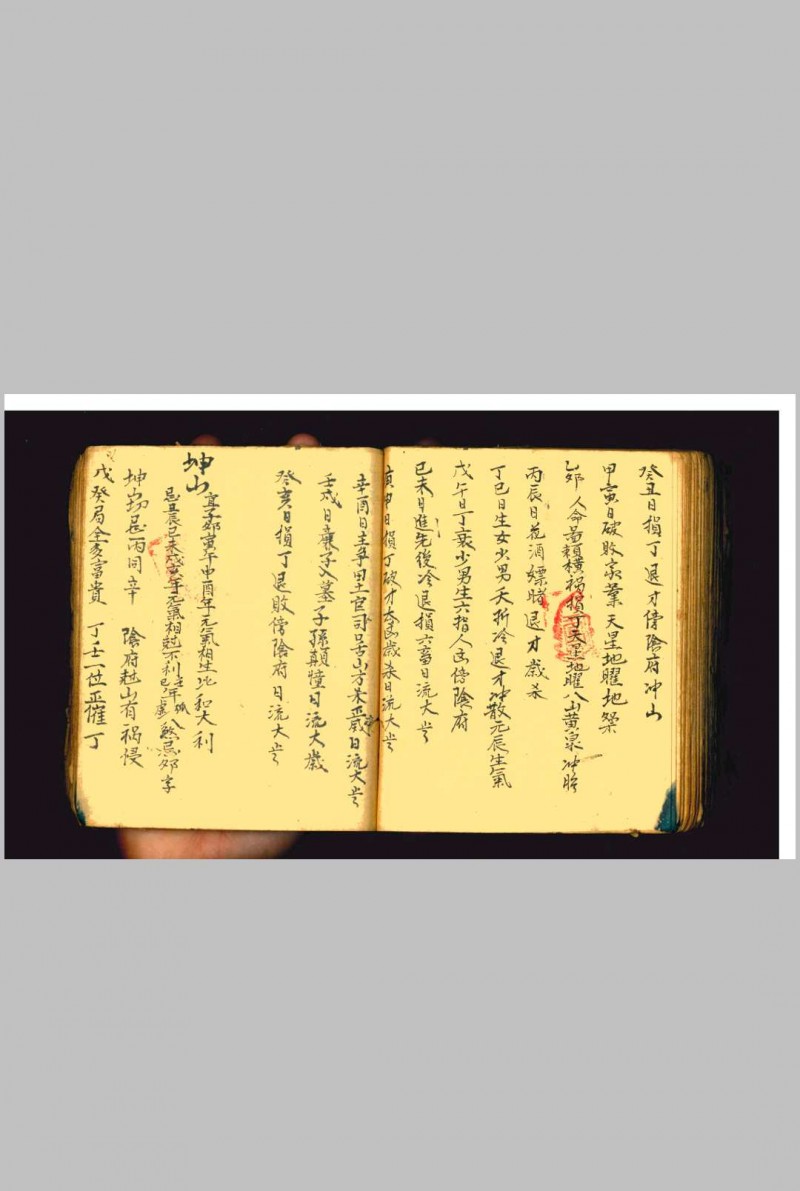 癸丑日損丁退才傍陰府冲山
甲寅日破敗家業天星地曜地
乙卯人命橫祸損丁天星地曜八山黄泉冲
丙辰日花酒嫖賭退才歲杀
丁巳日生女少男夭折冷退才冲散元辰生氣
戊午日丁衰少男生六指人傍陰府
己未日進先後冷退損六畜日流大
庚申日損丁破才歲杀日流大
辛酉日主争田土官司口舌山方日流大
壬戌日入墓子孫顛日流大歲
癸亥日損丁退敗傍陰府日流大
坤山
宜子卯寅午申酉年元氣相生比和大利
忌丑辰己未戌亥年元氣相尅不利年八煞忌卯
坤忌丙同辛 陰府尅山有祸
戊癸局全亥富貴 丁壬一位正催丁